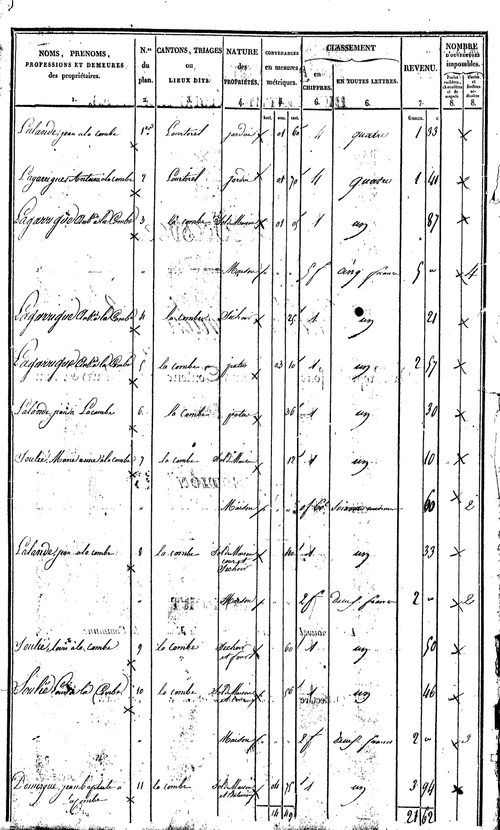 NOMS, PRENOMS, PROFESSIONS ET DEMEURES des propriétaires.
N.os du plan.
CANTONS, TRIAGES OU LIEUX DITS.
NATURE des PROPRIÉTÉS.
CONTENANCES en mesures métriques.
CLASSEMENT
en CHIFFRES.
EN TOUTES LETTRES.
REVENU.
NOMBRE D'OUVERTURES imposables.
1. 2. 3. 4. 5. 6. 6. 7. 8. 8.
hect. ares. cent. francs. c
Lalande jean à la combe 1er Lourtrel jardin 01 60 4 quatre 1 33
Lagarrigue Antoine à la combe 2 Lourtrel jardin 01 70 4 quatre 1 41
Lagarrigue à la Combe 3 la combe Sol de Maison 01 05 1 un 87
" Maison 5f cinq francs 5 " 4
Lagarrigue à la Combe 4 la combe Séchoir 25 1 un 21
Lagarrigue à la Combe 5 la combe patus 03 10 1 un 2 57
Lalande jean à Lacombe 6 la Combe patus 36 1 un 30
Soulié Marie à la combe 7 la combe Sol de Maison 12 1 un 10
" Maison 60 2
Lalande jean à la combe 8 la combe Sol de Maison 40 1 un 33
cour et
Séchoir
" Maison 2f deux francs 2 " 2
Soulié à la combe 9 la Combe Séchoir 60 1 un 50
et four
Soulié à la Combe 10 la Combe Sol de Maison 56 1 un 46
" Maison 2f deux francs 2 " 3
Domergue jean baptiste à 11 la combe Sol de Maison 04 75 1 un 3 94
la Combe
14 49 21 62